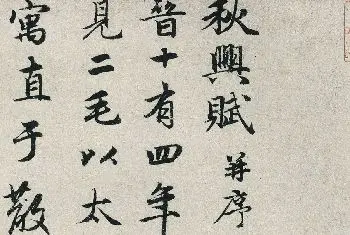 秋興賦并序
晉十有四年
見二毛以太
寓直于散